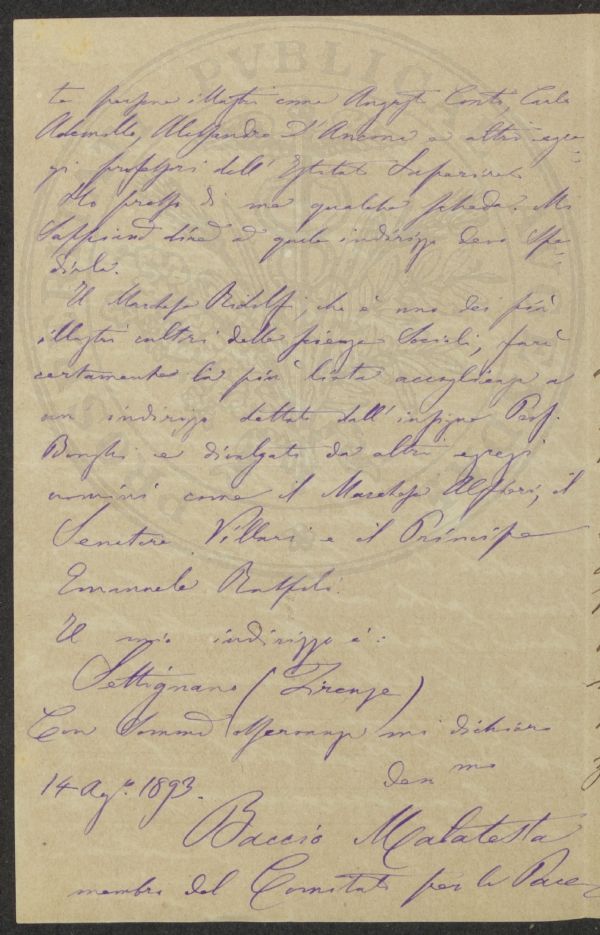 te persone illustri come Augusto Conti, Carlo
Ademollo, Alessandro D'Ancona e altri egre-
gi professori dell' Istituto Superiore.
Ho presso di me qualche scheda. Mi
sappiano dire a quale indirizzo devo spe-
dirle.
Il Marchese Ridolfi, che è uno dei più
illustri cultori delle scienze Sociali, farà
certamente la più lieta accoglienza a
un indirizzo dettato dall' insigne Prof.
Bonghi e divulgato da altri egregi
uomini come il Marchese Alfieri, il
Senatore Villari e il Principe
Emanuele Ruspoli.
Il mio indirizzo è:
Settignano (Firenze)
Con somma osservanza mi dichiaro
Dev mo
14 Ago. 1893.
Baccio Malatesta
membro del Comitato per la Pace